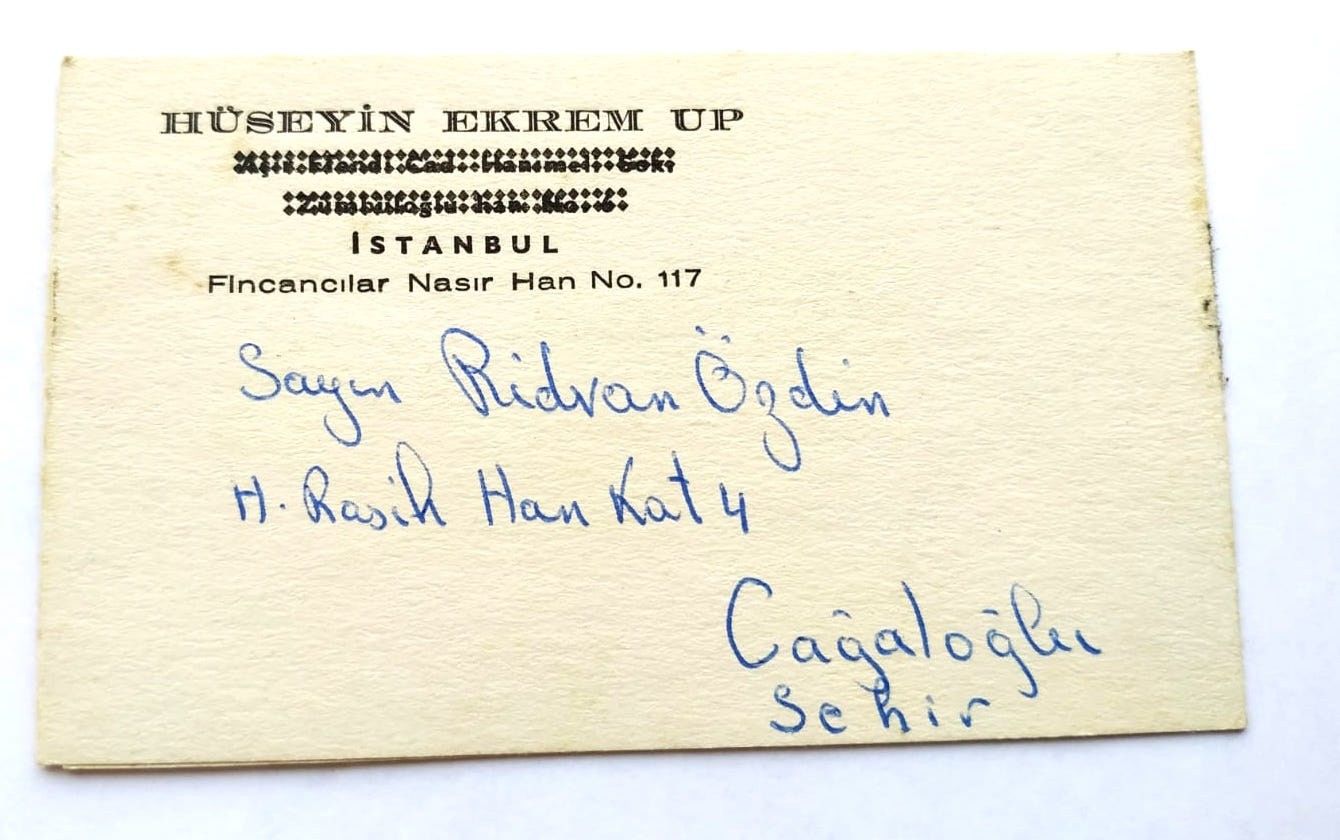 HÜSEYİN EKREM UP
İSTANBUL
Fincancılar Nasır Han No. 117
Sayın Ridvan Özdin
H. Rasih Han Kat 4
Cağaloğlu
Sehir